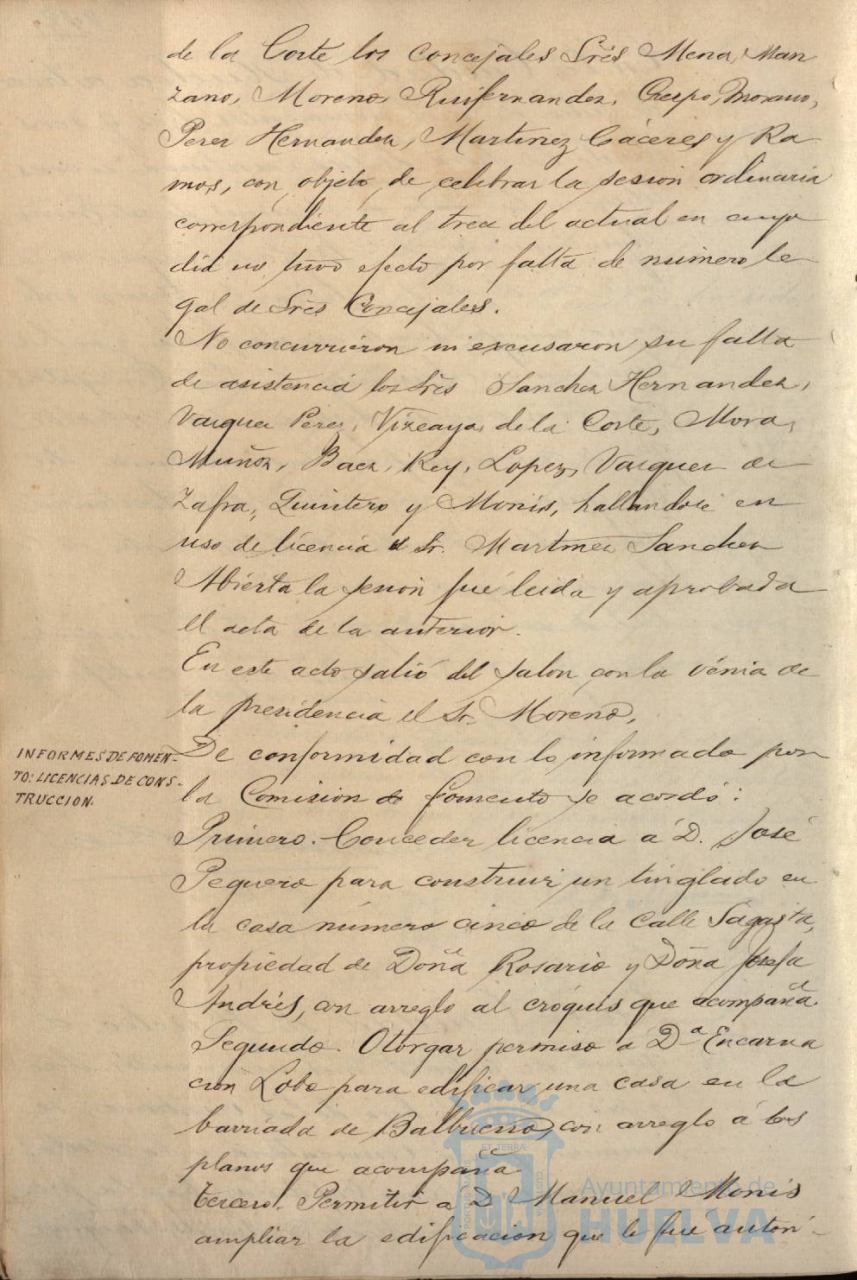 de la Corte los Concejales Srés Mena, Man
zano, Moreno, Ruifernandez, Crespo, Morano,
Perez Hernandez, Martinez Cáceres y Ra
mos, con objeto de celebrar la sesion ordinaria
correspondiente al trece del actual en cuyo
dia no tuvo efecto por falta de número le
gal de Srés Concejales.
No concurrieron ni excusaron su falta
de asistencia los Srés Sanchez Hernandez,
Vazquez Perez, Vizcaya, de la Corte, Mora,
Muñoz, Baez, Rey, Lopez, Vazquez de
Zafra, Quintero y Monis, hallandose en
uso de licencia el Sr. Martinez Sanchez
Abierta la sesion fué leida y aprobada
el acta de la anterior.
En este acto salió del salon con la vénia de
la presidencia el Sr. Moreno,
INFORMES DE FOMEN-
TO: LICENCIAS DE CONS-
TRUCCION.
De conformidad con lo informado por
la Comision de fomento se acordó:
Primero. Conceder licencia á D. José
Peguero para construir un tinglado en
la casa número cinco de la Calle Sagasta,
propiedad de Doña Rosario y Doña Josefa
Andrés, con arreglo al cróquis que acompaña.
Segundo. Otorgar permiso a Dª Encarna
cion Lobo para edificar una casa en la
barriada de Balbueno, con arreglo á los
planos que acompaña
tercero. Permitir a D Manuel Monis
ampliar la edificacion que le fué autori-
Ayuntamiento de
HUELVA